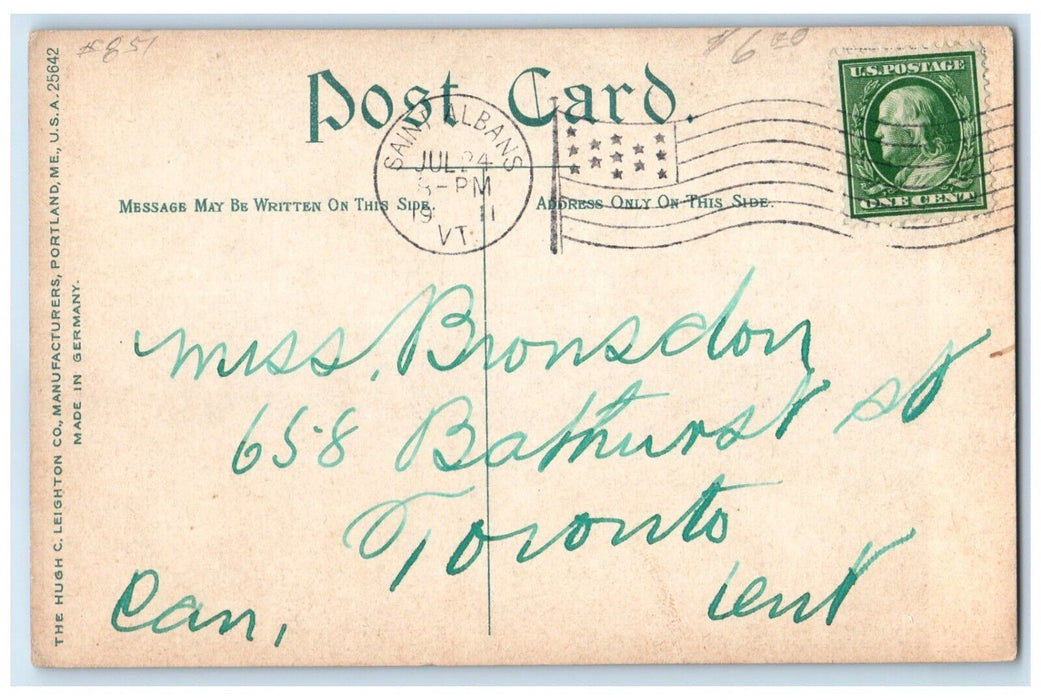 #851
$6.20
Post Card.
U.S. POSTAGE
ONE CENT
SAINT ALBANS
JUL 24
8-PM
19 11
VT.
MESSAGE MAY BE WRITTEN ON THIS SIDE.
ADDRESS ONLY ON THIS SIDE.
THE HUGH C. LEIGHTON CO., MANUFACTURERS, PORTLAND, ME., U.S.A. 25642
MADE IN GERMANY.
Miss. Bronsdon
658 Bathurst St
Toronto
Can,